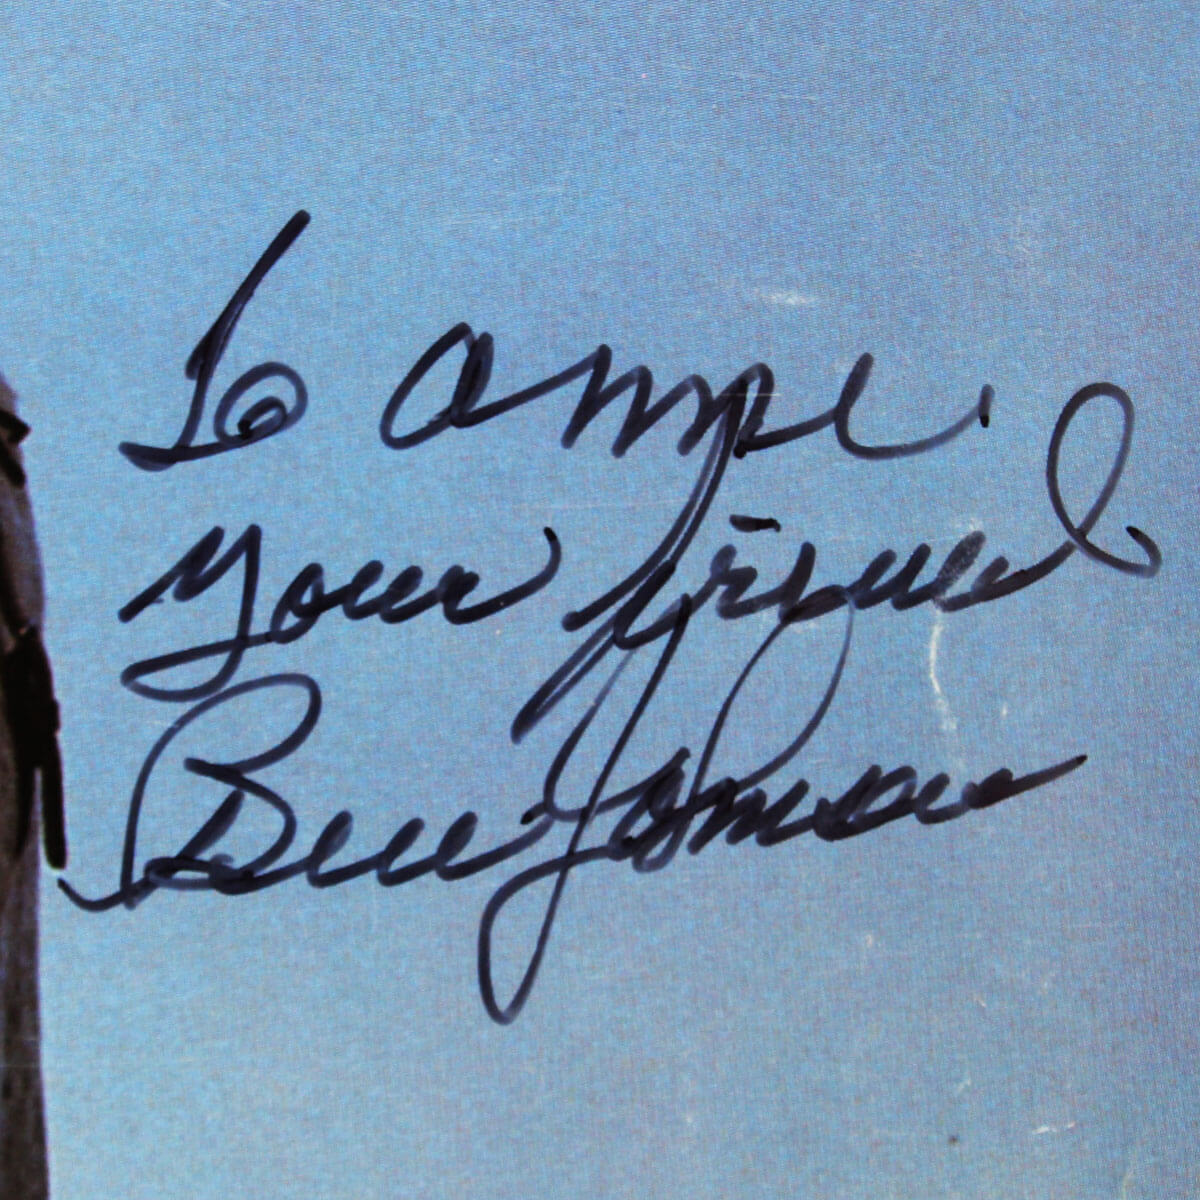 To Anne
Your Friend
Ben Johnson